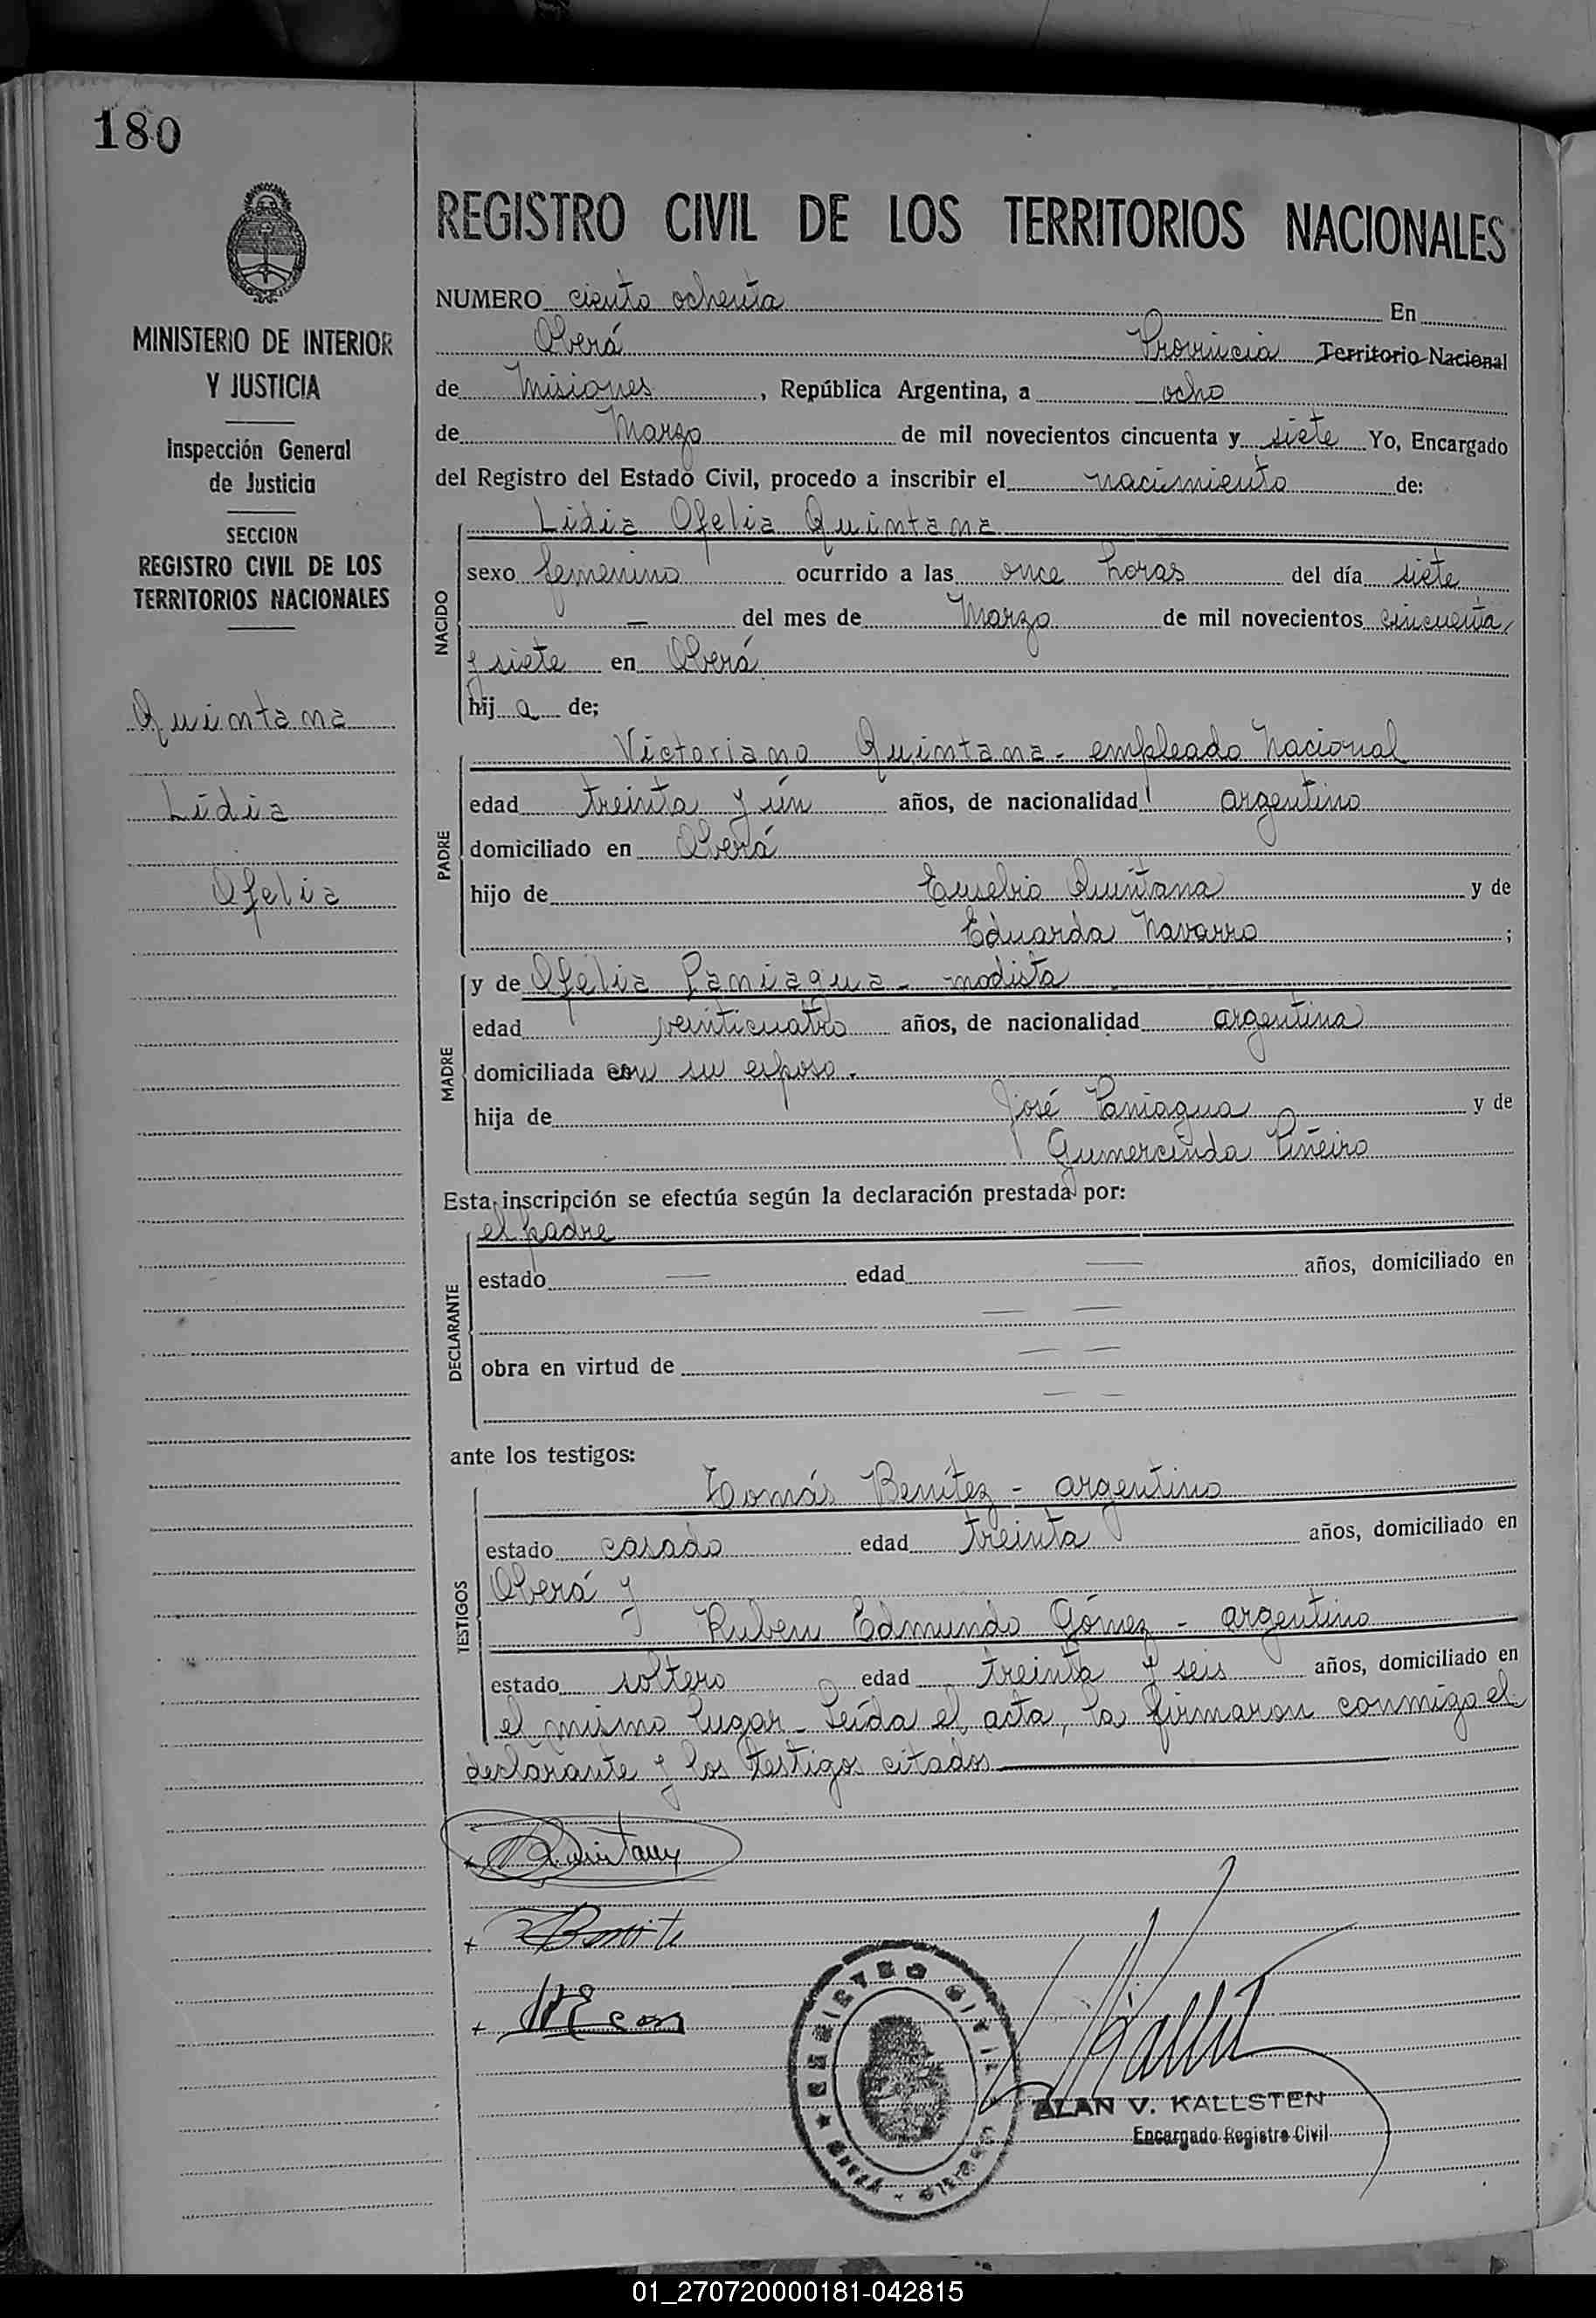 180
MINISTERIO DE INTERIOR
Y JUSTICIA
Inspección General
de Justicia
SECCION
REGISTRO CIVIL DE LOS
TERRITORIOS NACIONALES
Quintana
Lidia
Ofelia
REGISTRO CIVIL DE LOS TERRITORIOS NACIONALES
NUMERO ciento ochenta En
Oberá Provincia Territorio Nacional
de Misiones, República Argentina, a ocho
de Marzo de mil novecientos cincuenta y siete Yo, Encargado
del Registro del Estado Civil, procedo a inscribir el nacimiento de:
NACIDO
Lidia Ofelia Quintana
sexo femenino ocurrido a las once horas del día siete
— del mes de Marzo de mil novecientos cincuenta
y siete en Oberá
hij a de;
PADRE
Victoriano Quintana - empleado Nacional
edad treinta y ún años, de nacionalidad argentino
domiciliado en Oberá
hijo de Eusebio Quintana y de
Eduarda Navarro ;
MADRE
y de Ofelia Paniagua - modista
edad veinticuatro años, de nacionalidad argentina
domiciliada con su esposo.
hija de José Paniagua y de
Gumercinda Piñeiro
Esta inscripción se efectúa según la declaración prestada por:
DECLARANTE
el padre
estado — edad — años, domiciliado en
— —
obra en virtud de — —
— —
ante los testigos:
TESTIGOS
Tomás Benítez - argentino
estado casado edad treinta años, domiciliado en
Oberá y
Ruben Edmundo Gómez - argentino
estado soltero edad treinta y seis años, domiciliado en
el mismo lugar - Leída el acta, la firmaron conmigo el
declarante y los testigos citados
Quintana
REGISTRO CIVIL
ALAN V. KALLSTEN
Encargado Registro Civil
01_270720000181-042815